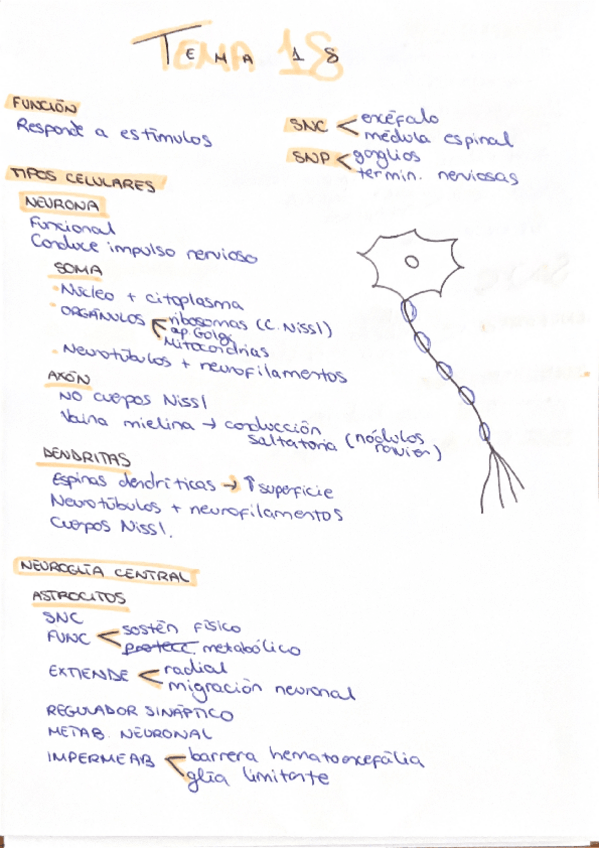 TEMA 18
FUNCIÓN
Responde a estímulos
SNC < encéfalo
médula espinal
SNP < ganglios
termin. nerviosas
TIPOS CELULARES
NEURONA
Funcional
Conduce impulso nervioso
SOMA
· Núcleo + citoplasma
· ORGÁNULOS < ribosomas (C. Nissl)
ap. Golgi
Mitocondrias
· Neurotúbulos + neurofilamentos
AXÓN
NO cuerpos Nissl
Vaina mielina → conducción
saltatoria (nódulos
ranvier)
DENDRITAS
Espinas dendríticas → ↑ superficie
Neurotúbulos + neurofilamentos
Cuerpos Nissl.
NEUROGLÍA CENTRAL
ASTROCITOS
SNC
FUNC < sostén físico
protecc. metabólico
EXTIENDE < radial
migración neuronal
REGULADOR SINÁPTICO
METAB. NEURONAL
IMPERMEAB < barrera hematoencefália
glía limitante